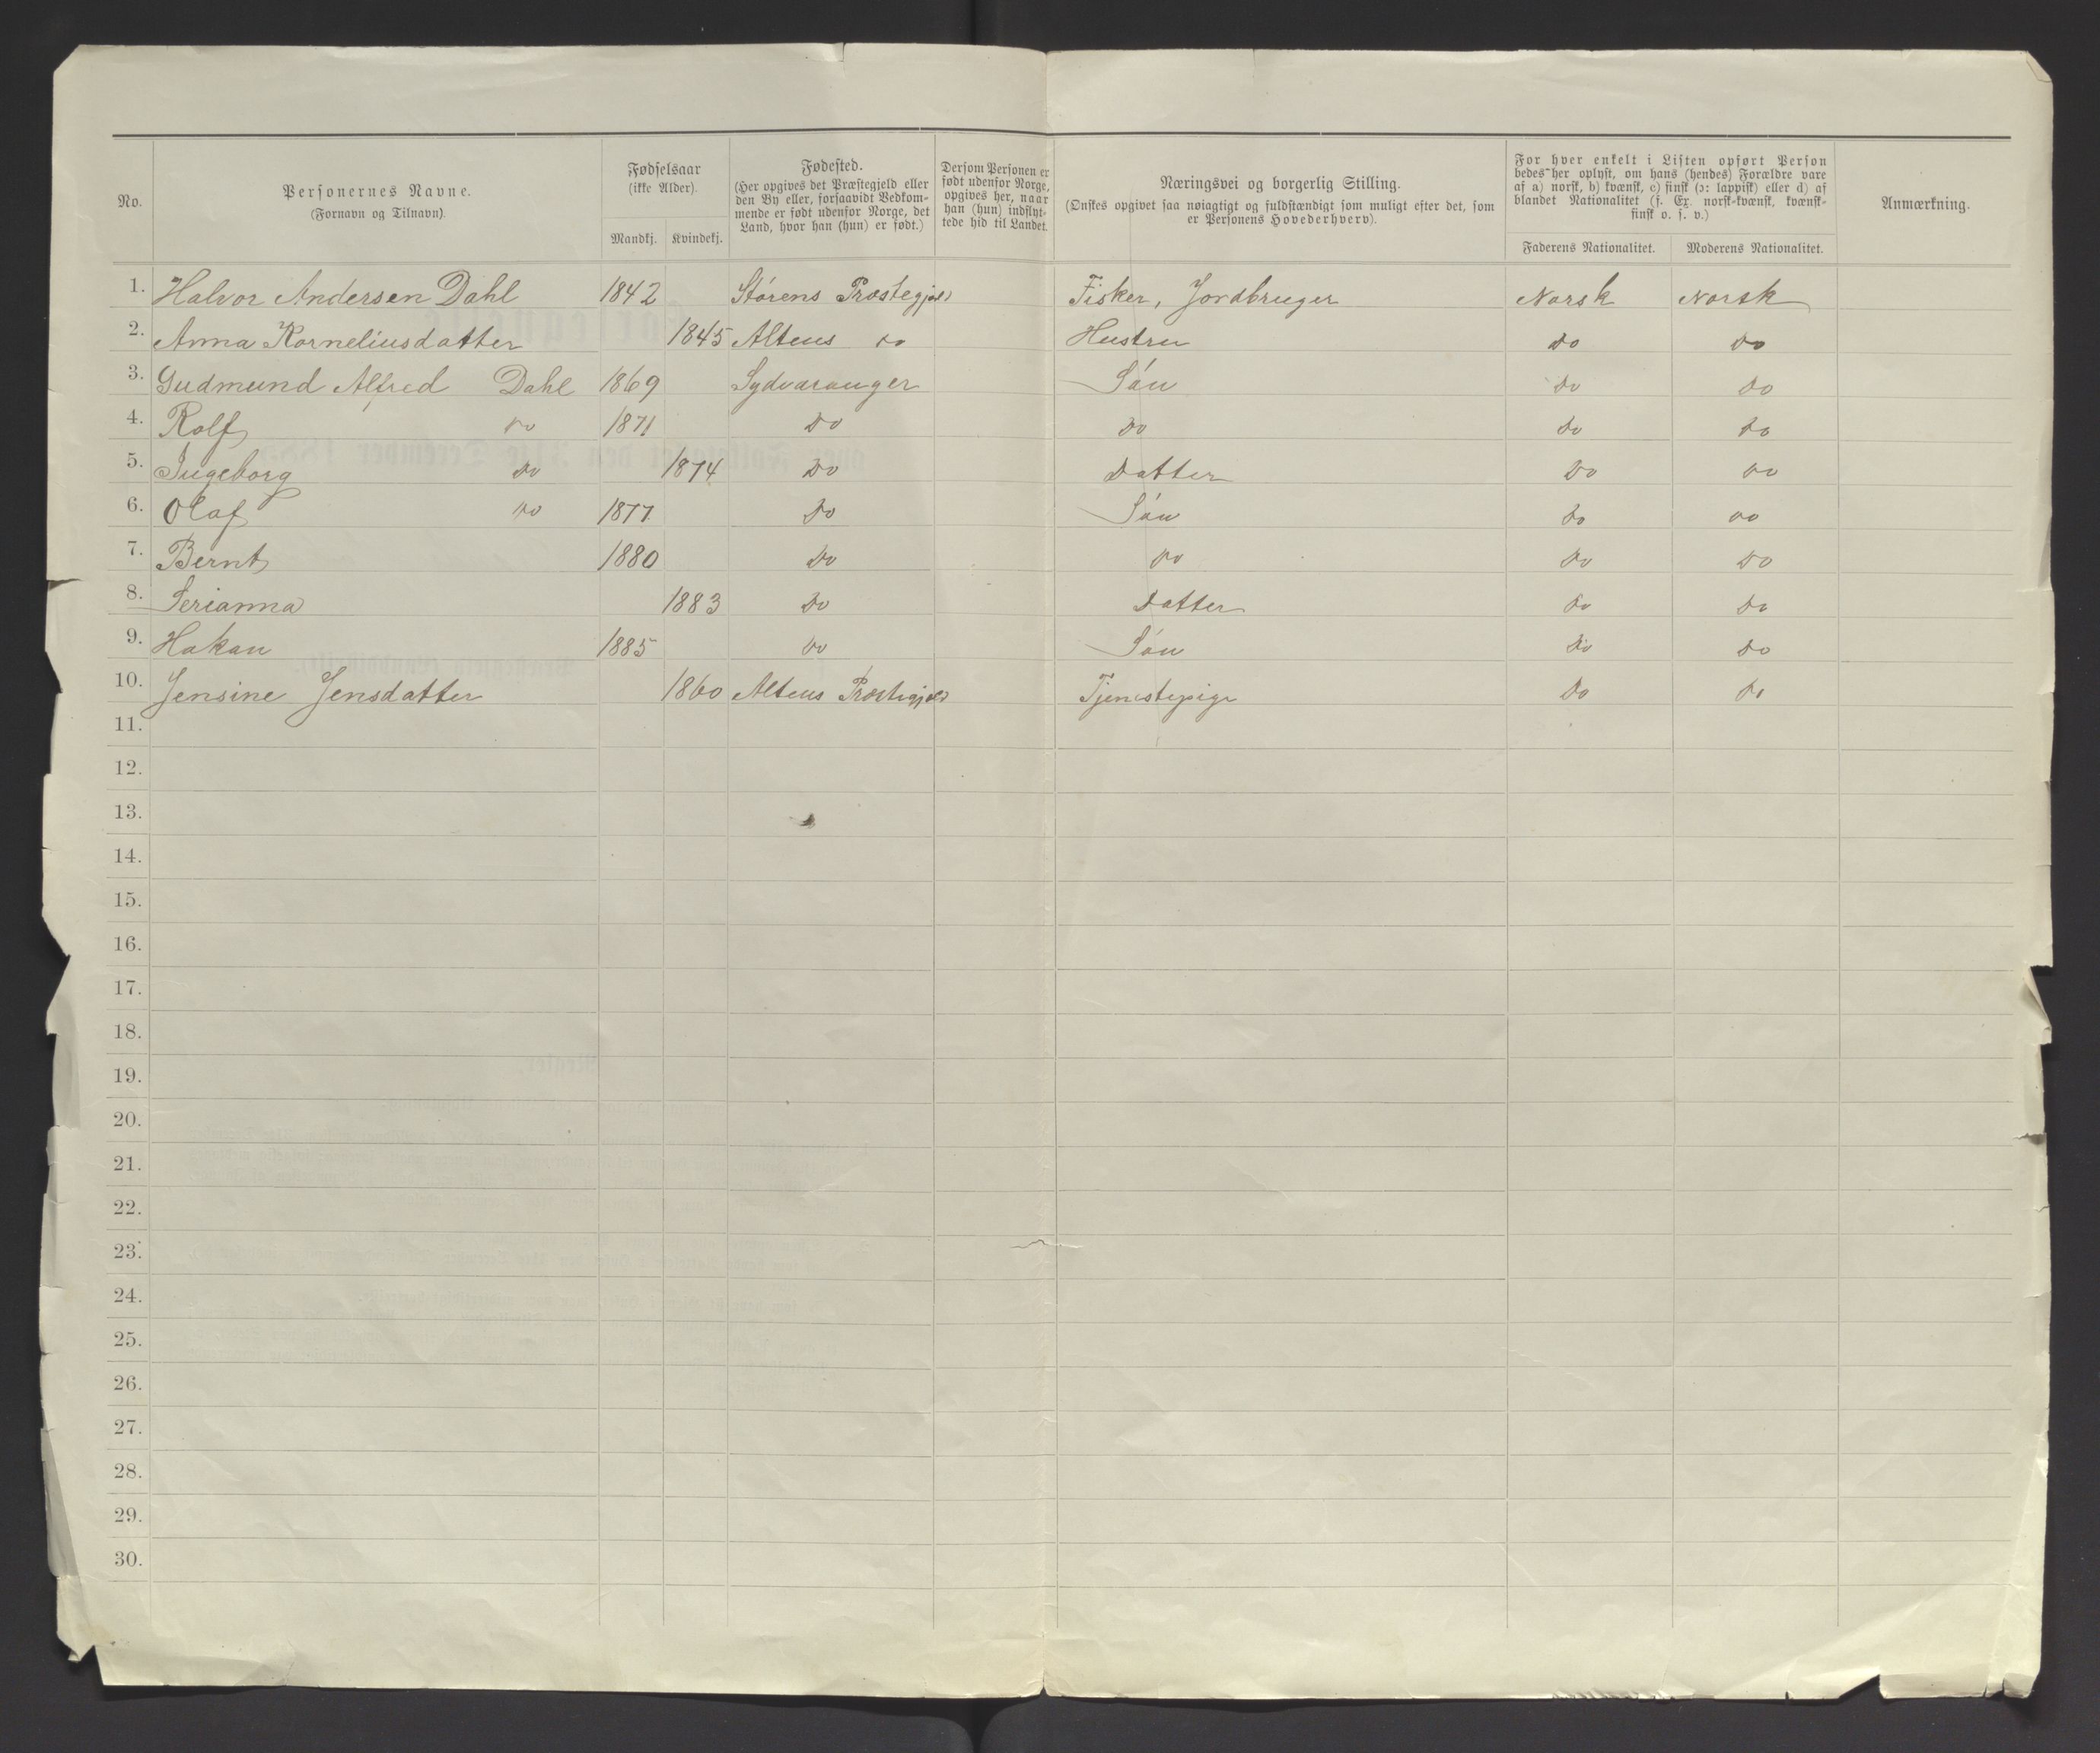 No.
Personernes Navne.
(Fornavn og Tilnavn).
Fødselsaar
(ikke Alder).
Mandkj. Kvindekj.
Fødested.
(Her opgives det Præstegjeld eller
den By eller, forsaavidt Vedkom-
mende er født udenfor Norge, det
Land, hvor han (hun) er født.)
Dersom Personen er
født udenfor Norge,
opgives her, naar
han (hun) indflyt-
tede hid til Landet.
Næringsvei og borgerlig Stilling.
(Ønskes opgivet saa nøiagtigt og fuldstændigt som muligt efter det, som
er Personens Hovederhverv).
For hver enkelt i Listen opført Person
bedes her oplyst, om hans (hendes) Forældre vare
af a) norsk, b) kvænsk, c) finsk (ɔ: lappisk) eller d) af
blandet Nationalitet (f. Ex. norsk-kvænsk, kvænsk-
finsk o. s. v.)
Faderens Nationalitet. Moderens Nationalitet.
Anmærkning.
1. Halvor Andersen Dahl 1842 Störens Præstegjeld Fisker, Jordbruger Norsk Norsk
2. Anna Korneliusdatter 1845 Altens do Hustru do do
3. Gudmund Alfred Dahl 1869 Sydvaranger Sön do do
4. Rolf do 1871 do do do do
5. Ingeborg do 1874 do Datter do do
6. Olaf do 1877 do Sön do do
7. Bernt 1880 do do do do
8. Serianna 1883 do Datter do do
9. Hakan 1885 do Sön do do
10. Jensine Jensdatter 1860 Altens Præstegjeld Tjenestepige do do
11.
12.
13.
14.
15.
16.
17.
18.
19.
20.
21.
22.
23.
24.
25.
26.
27.
28.
29.
30.